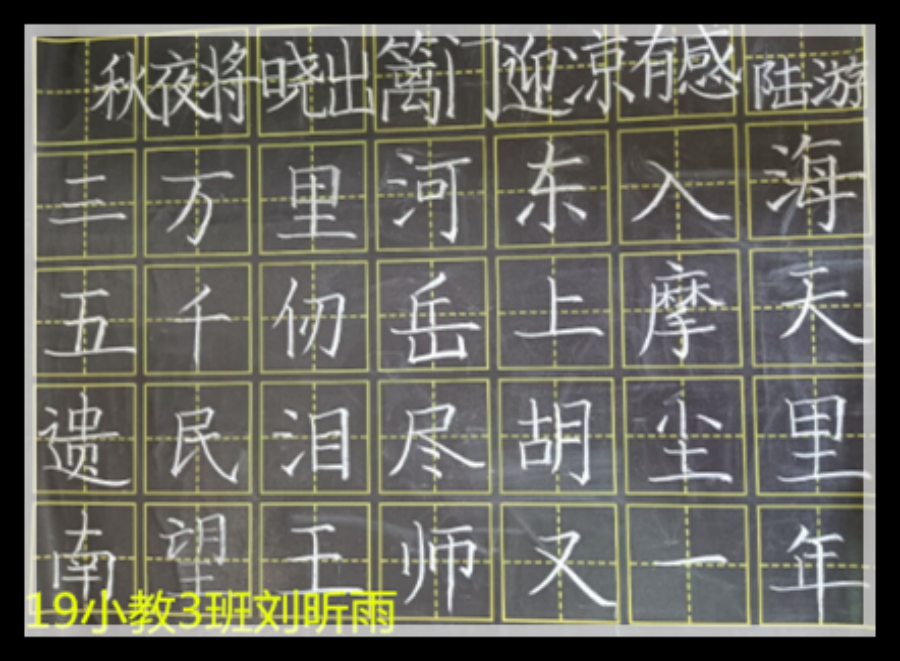 秋夜将晓出篱门迎凉有感 陆游
三万里河东入海
五千仞岳上摩天
遗民泪尽胡尘里
南望王师又一年
19小教3班刘昕雨